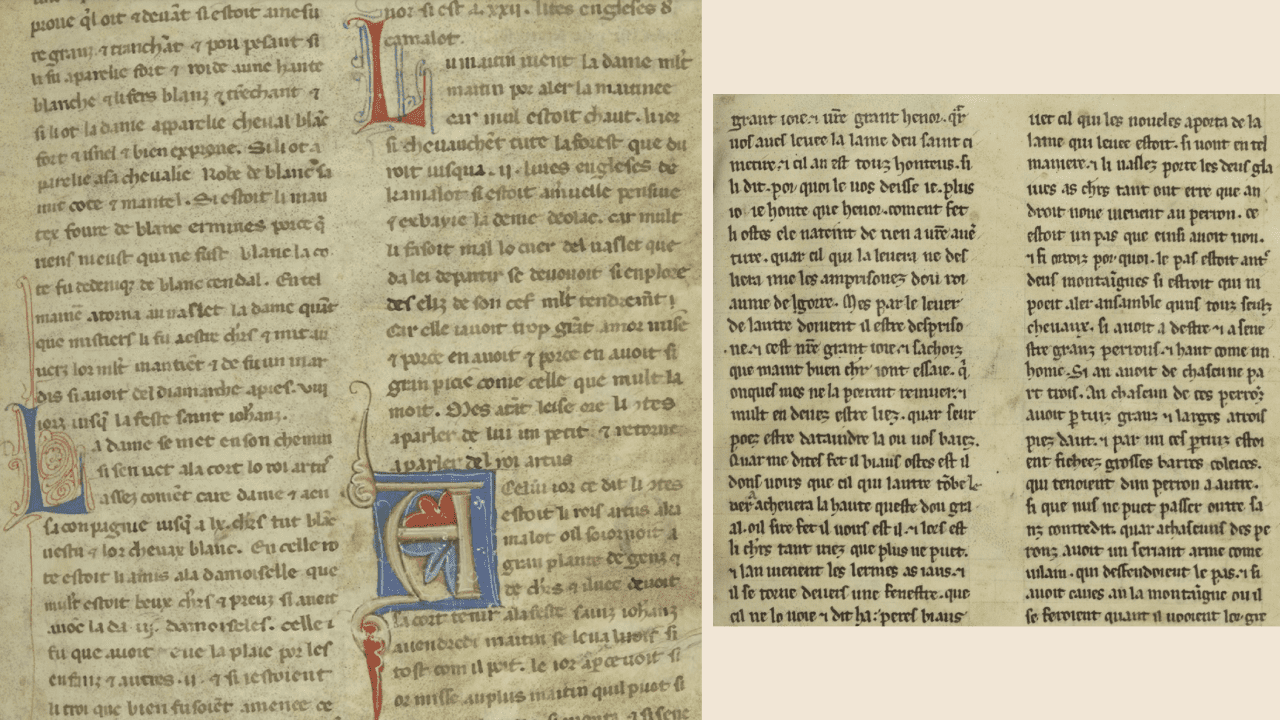 proue ql oit & deuāt si estoit amesu
re granz & trancħat & pou pesant si
li fu aparelie fort & roide aune hante
blanche & li fers blanz & trēchant &
si li ot la dame apparelie cheual blāc
fort & isnel & bien exprone. Si li ot a
parelie asa cheualie Robe de blanc sa
mit cote & mantel. Si estoit li man
tex foure de blanc ermines porce q̄
riens nieust qui ne fust blanc la co
te fu dedeniz de blanc cendal. En tel
maniē atorna au uaslet la dame quāt
que mistiers li fu aestre chrs & mut au
uerz lor mlt mantiēt & de fu un mar
dis si auoit del diamarche apres. viij
iorz iusq̄ la feste saint ioħanz.
La dame se met en son chemin
si sen uet ala cort lo roi artus
assez conuēt cure dame & acu
sa conpagnie iusq̄ a lx. chrs tuit blāc
uestu & lor cheuax blanc. En celle ro
te estoit li amis ala damoiselle que
mult estoit beux chrs & preuz si auoit
auoc la da iij. damoiseles. celle i
fu que auoit eue la plaie por les
enfanz & autres .ii. & si iestoient
li troi que bien fusoiēt amence ce
nor si est a. xxii. liues engleses d
camalot.
Lu matin muent la dame mlt
matin por aler la matinee
car mul estoit chaut. lior
si cheuauchēt tute la forest que du
roit iusqua .ii. liues engleses de
kamalot si estoit amuelle pensiue
& exbayie la deme deolac. car mult
li fasoit mal lo cuer del uaslet que
da lei departir se deuouoit si enplore
des eliz de son cef mlt tendremīt ı
Car elle iauoit trop grāt amor mise
& porce en auoit & porce en auoit si
gran picie come celle que mult la
moit. Mes atāt leise ore li 9tes
aparler de lui un petit. & retorne
aparler del roi artus
A Celui ior ce dit li 9tes
estoit li rois artus aka
malot oil soiornoit a
gran plante de genz &
de chrs & iluec deuoit
la cort tenir alafeste sainz iohanz
auendredi maitin se leua luois si
tost com il poit. le ior apceuoit si
or misse auplus maitin quil puot si
grant ioie. & ur̄e grant henor. q̄r
uos auez leuee la lame deu saint ci
metire. & cil an est touz honteus. fi
li dit. por quoi le uos deisse ie. plus
io ie honte que henor. coment fet
li ostes ele nateint de rien a ur̄e auē
ture. quar cil qui la leuera ne des
liera mie les anprisonez dou roi
aume de lgorre. Mes par le leuer
de lautre doiuent il estre despriso
ne. & cest nr̄e grant ioie. & sachoiz
que maint buen chr iont essaie. q̄
onques mes ne la porent remuer. &
mult en deuez estre liez. quar seur
poez estre dataindre la ou uos baiez.
Quar me dites fet il biaus ostes est il
dons uoirs que cil qui lautre tōbe le
uer̄ achieuera la haute queste dou gra
al. oil sire fet il uoirs est il. & lors est
li chrs tant iriez que plus ne puet.
& lan uienent les lermes as iauz. &
il se torne deuers une fenestre. que
cil ne lo uoie & dit ha: peres biaus
uet cil qui les noueles aporta de la
lame qui leuee estoit. si uont en tel
maniere. & li uaslez porte les deus gla
iues as chrs tant ont erre que an
droit none uienent au perron. ce
estoit un pas que einsi auoit non.
& si orroiz por quoi. le pas estoit antr̄
deus montaignes si estroit qui ni
poeit aler ansamble quins touz seulz
cheuaux. si auoit a destre & a sene
stre granz perrons. & haut come un
home. Si an auoit de chascune pa
rt trois. An chascun de ces perroz
auoit ptuiz granz & larges atrois
piez daut. & par un cef ptuiz estoi
ent fichees grosses barres coleices.
qui tenoient dun perron a autre.
si que nus ne puet passer outre sa
nz contredit. quar achascuns des pe
ronz auoit un seriant arme come
uilain. qui deffendoient le pas. & si
auoit caues an la montaigne ou il
se feroient quant il uooient lor gre